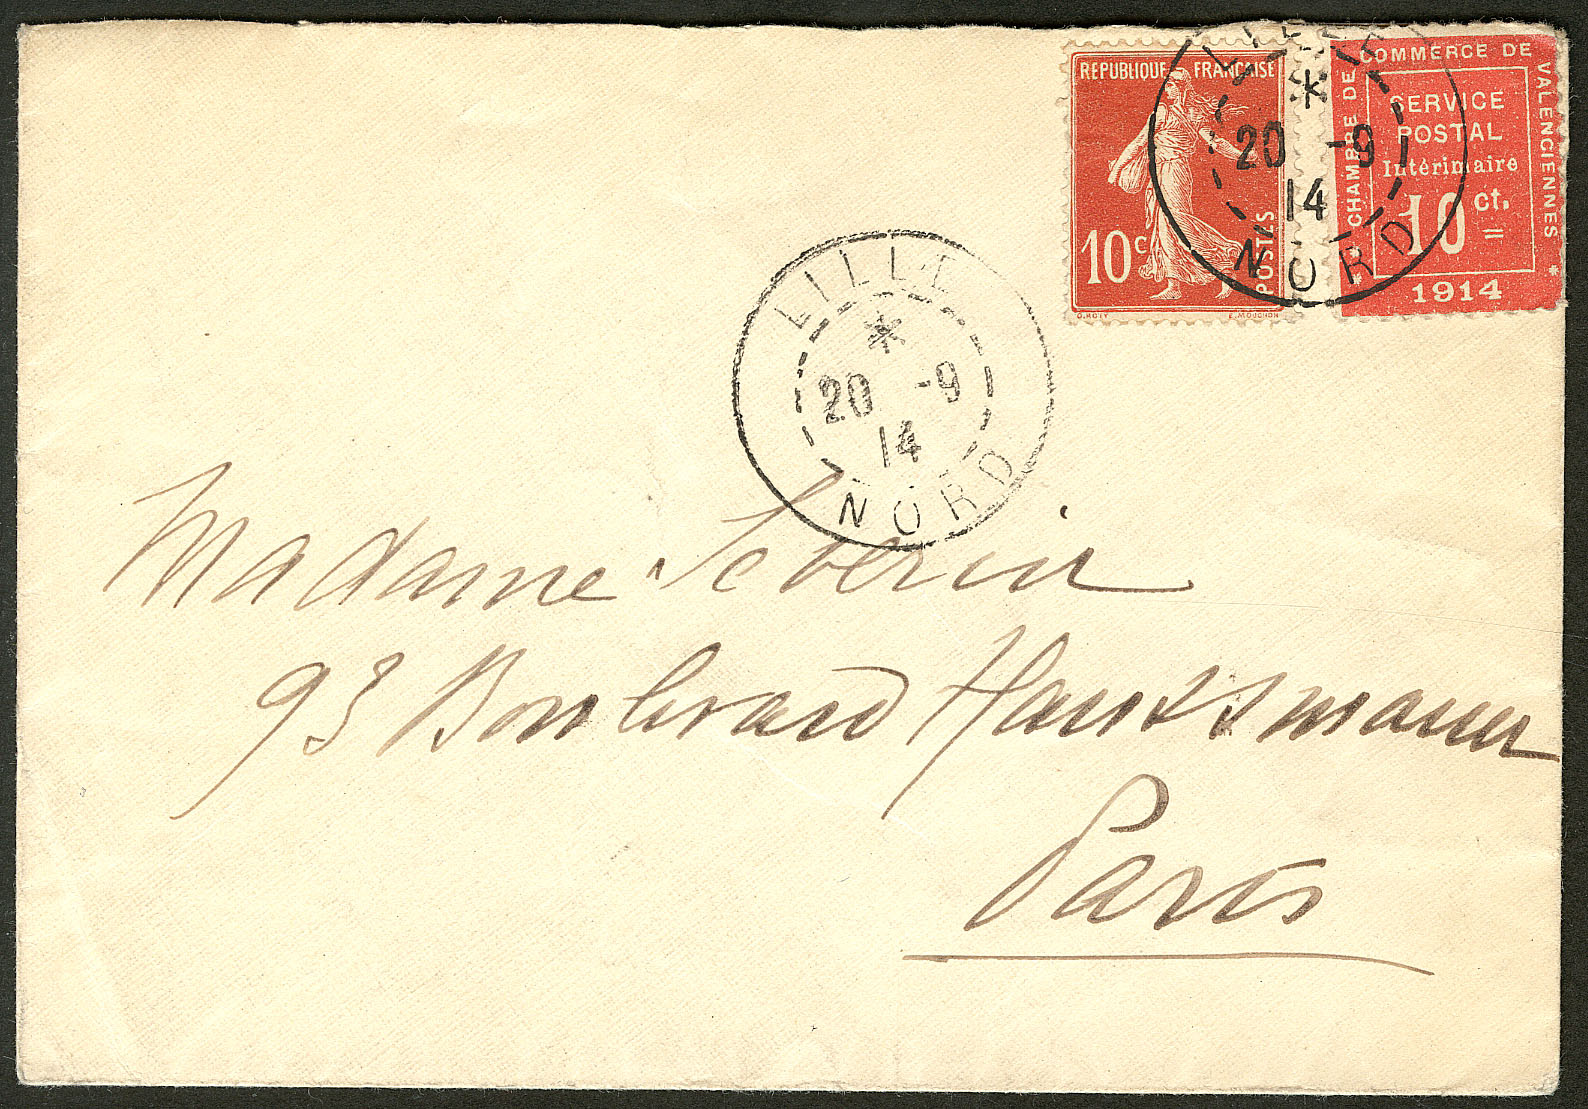 REPUBLIQUE FRANÇAISE
10c
POSTES
O. ROTY E. MOUCHON
CHAMBRE DE COMMERCE DE VALENCIENNES
SERVICE
POSTAL
Intérimaire
10 ct.
1914
LILLE
20 -9
14
NORD
LILLE
20 -9
14
NORD
Madame Séverin
93 Boulevard Haussmann
Paris